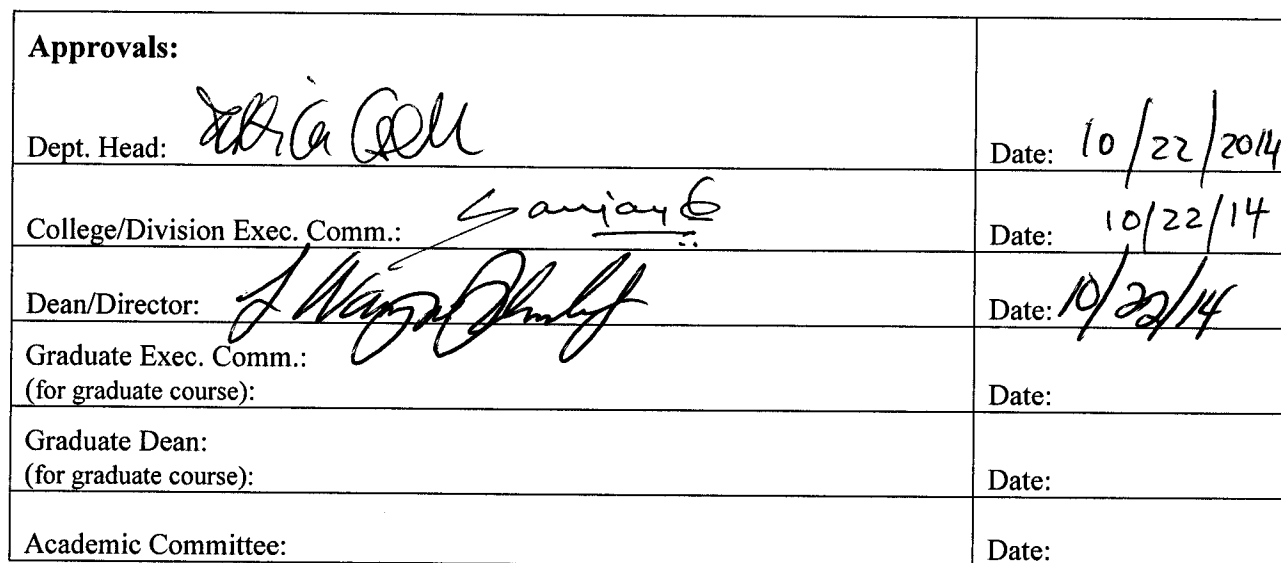 Approvals:
Dept. Head:
Date: 10/22/2014
College/Division Exec. Comm.: Sanjay G
Date: 10/22/14
Dean/Director: Wayne
Date: 10/22/14
Graduate Exec. Comm.:
(for graduate course):
Date:
Graduate Dean:
(for graduate course):
Date:
Academic Committee:
Date: